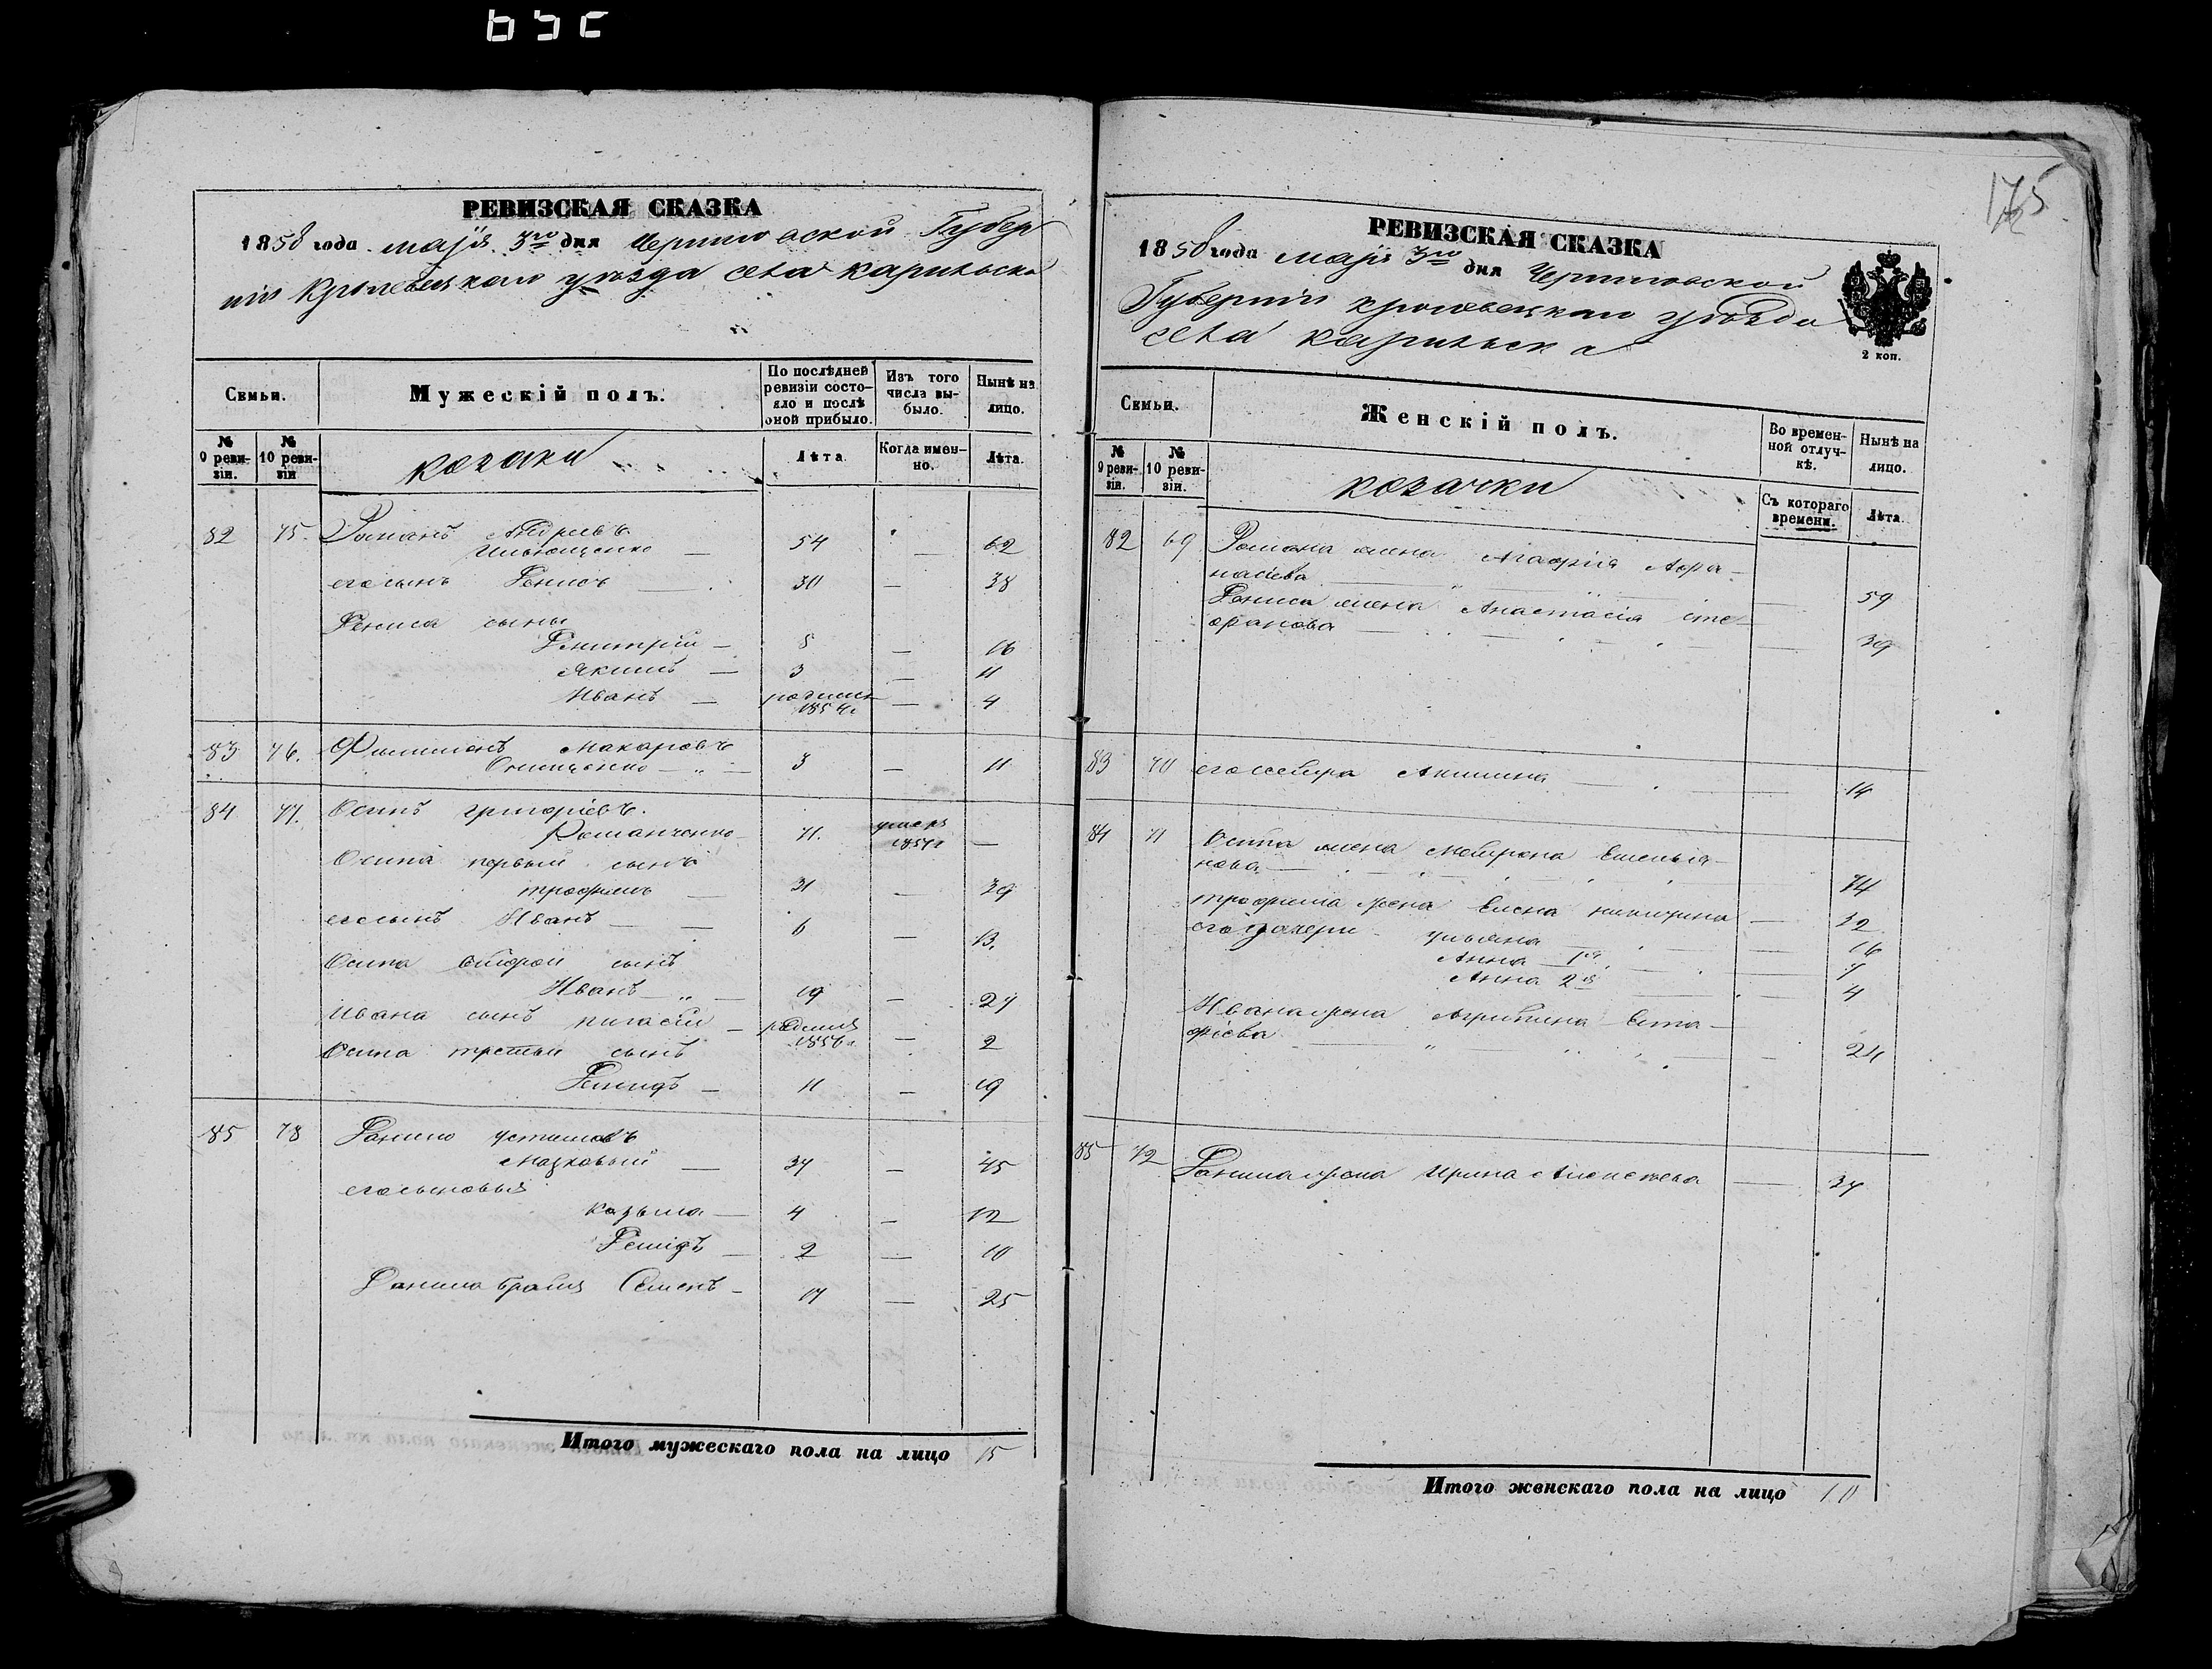 175
РЕВИЗСКАЯ СКАЗКА
1858 года маія 3го дня Черниговской Губер
ніи Кролевецкаго уѣзда села Карильска
Семьи.
Мужескій полъ.
По послѣдней ревизіи состояло и послѣ оной прибыло.
Изъ того числа выбыло.
Нынѣ на лицо.
№ 9 ревизіи.
№ 10 ревизіи
козаки
Лѣта
Когда именно.
Лѣта.
82 75. Романъ Андреевъ
Ильющенко — 54 — 62
его сынъ Денисъ — 30 — 38
Дениса сыны
Димитрій — 8 — 16
Якимъ — 3 — 11
Иванъ — 1854г — 4
83 76. Филимонъ Макаровъ
Онищенко — 3 — 11
84 77. Осипъ Григоріевъ
Романченко 71. умеръ 1857г —
Осипа первый сынъ
Трофимъ — 31 — 39
его сынъ Иванъ — — 13.
Осипа второй сынъ
Иванъ — 19 — 27
Ивана сынъ — родился 1856г — 2
Осипа третьи сынъ
Демидъ — 11 — 19
85 78 Данило Устимовъ
— 37 — 45
его сыновья
Козьма — 4 — 12
Демидъ — 2 — 10
Данила братъ Семенъ — 17 — 25
Итого мужескаго пола на лицо 15
РЕВИЗСКАЯ СКАЗКА
1858 года маія 3го дня Черниговской
Губерніи Кролевецкаго уѣзда
села Карильска
2 коп.
Семьи.
Женскій полъ.
Во временной отлучкѣ.
Нынѣ на лицо.
№ 9 ревизіи.
№ 10 ревизіи.
козачки
Съ котораго времени.
Лѣта.
82 69 Романа жена Агафія Афа-
насіева — 59
Дениса жена Анастасія Сте-
фанова — 39
83 70 его сестра Акилина — 14
84 71 Осипа жена Мотрона Емелья-
нова — 74
Трофима жена Елена Никитина — 32
его дочери Ульяна — 16
Анна 1я — 7
Анна 2я — 4
Ивана жена Агрипина Евста-
фіева — 24
85 72 Данила жена Ирина Алексѣева — 37
Итого женскаго пола на лицо 10